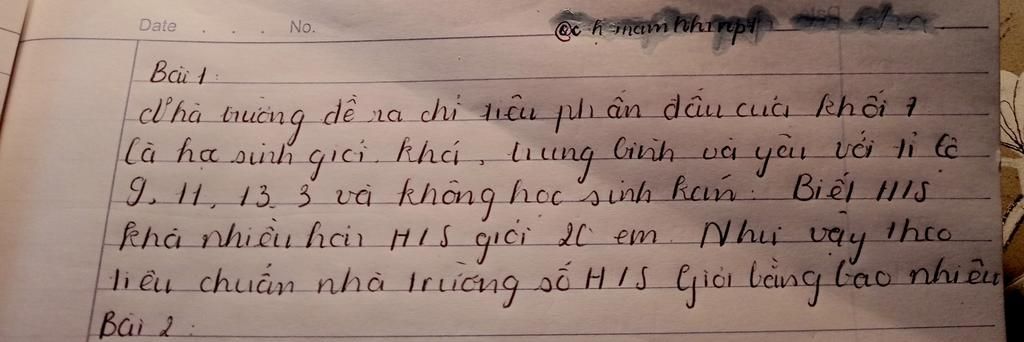 Date . . . No.
@c h mam nhi npy
Bài 1:
Nhà trường đề ra chỉ tiêu phấn đấu của khối 7
là học sinh giỏi, khá, trung bình và yếu với tỉ lệ
9, 11, 13, 3 và không học sinh kém. Biết H/S
khá nhiều hơn H/S giỏi 20 em. Như vậy theo
tiêu chuẩn nhà trường số H/S Giỏi bằng bao nhiêu
Bài 2: